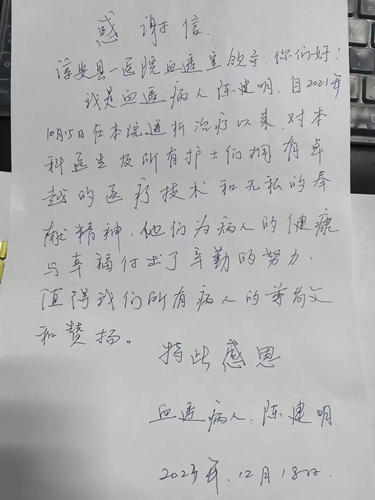 感谢信.
淳安县一医院血透室领导.你们好!
我是血透病人陈建明.自2021年
10月15日在本院透析治疗以来.对本
科医生及所有护士们拥有卓
越的医疗技术和无私的奉
献精神.他们为病人的健康
与幸福付出了辛勤的努力.
值得我们所有病人的尊敬
和赞扬。
特此感恩
血透病人:陈建明
2023年.12月18日.